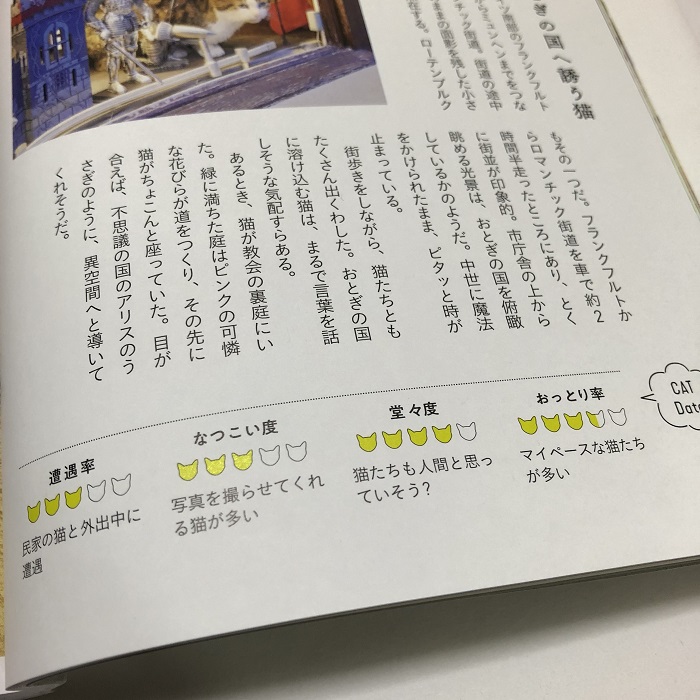 ぎの国へ誘う猫
イツ南部のフランクフルト
らミュンヘンまでをつな
チック街道。街道の途中
ままの面影を残した小さ
在する。ローテンブルク
もその一つだ。フランクフルトか
らロマンチック街道を車で約2
時間半走ったところにあり、とく
に街並が印象的。市庁舎の上から
眺める光景は、おとぎの国を俯瞰
しているかのようだ。中世に魔法
をかけられたまま、ピタッと時が
止まっている。
街歩きをしながら、猫たちとも
たくさん出くわした。おとぎの国
に溶け込む猫は、まるで言葉を話
しそうな気配すらある。
あるとき、猫が教会の裏庭にい
た。緑に満ちた庭はピンクの可憐
な花びらが道をつくり、その先に
猫がちょこんと座っていた。目が
合えば、不思議の国のアリスのう
さぎのように、異空間へと導いて
くれそうだ。
CAT
Data
おっとり率
マイペースな猫たち
が多い
堂々度
猫たちも人間と思っ
ていそう?
なつこい度
写真を撮らせてくれ
る猫が多い
遭遇率
民家の猫と外出中に
遭遇